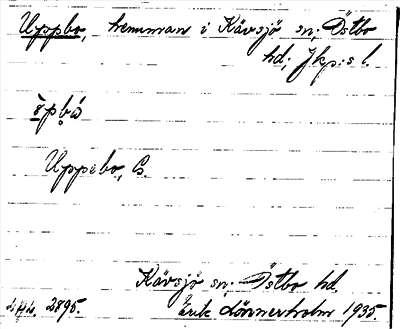 Uppbo, hemman i Kävsjö sn; Östbo
hd; Jkp:s l.
Uppebo, C.
Kävsjö sn; Östbo hd.
2895. Erik Lönnerholm 1935.